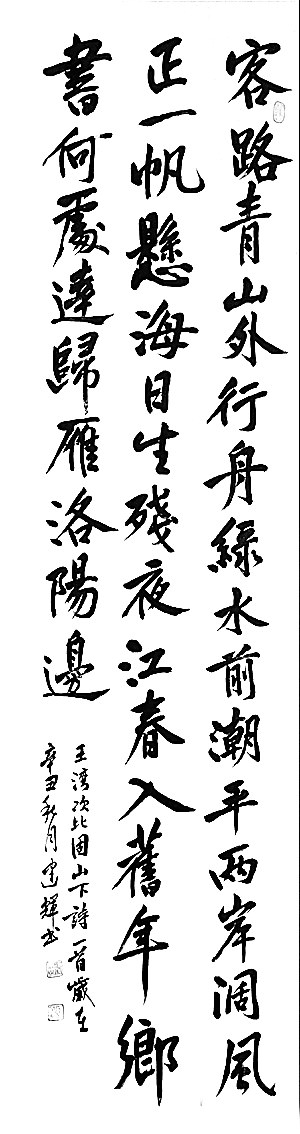 客路青山外行舟綠水前潮平兩岸闊風
正一帆懸海日生殘夜江春入舊年鄉
書何處達歸雁洛陽邊
王湾次北固山下詩一首歲在
辛丑秋月建輝书